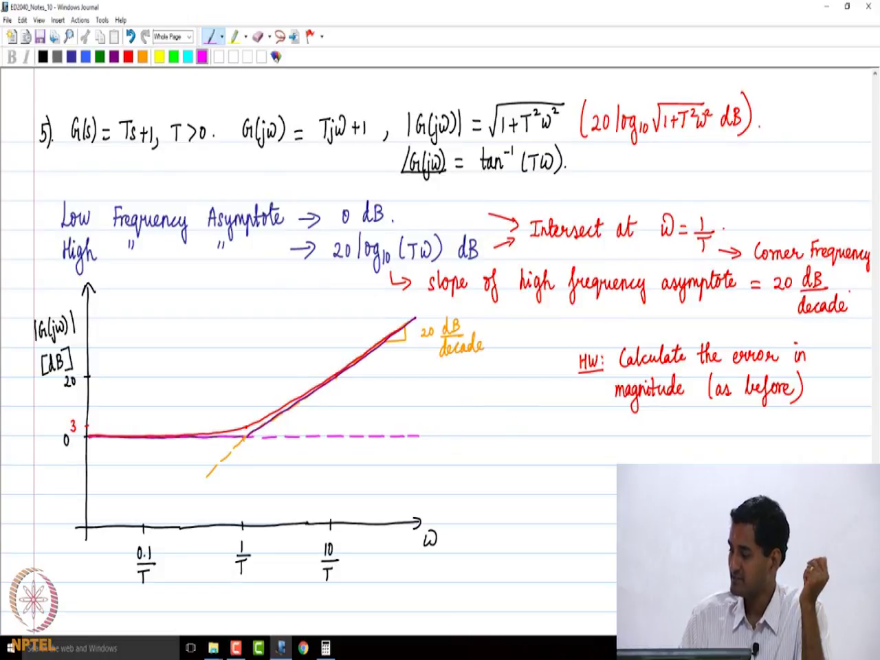 ED2040_Notes_10 - Windows Journal
File Edit View Insert Actions Tools Help
Whole Page
B I
5). G(s) = Ts+1, T>0. G(jω) = Tjω+1, |G(jω)| = √1+T²ω² (20 log₁₀ √1+T²ω² dB).
∠G(jω) = tan⁻¹ (Tω).
Low Frequency Asymptote → 0 dB.
High " " → 20 log₁₀ (Tω) dB
→ Intersect at ω = 1/T.
→ Corner Frequency
↳ slope of high frequency asymptote = 20 dB/decade.
|G(jω)|
[dB]
20
3
0
20 dB/decade
HW: Calculate the error in
magnitude (as before)
0.1/T
1/T
10/T
ω
NPTEL
the web and Windows